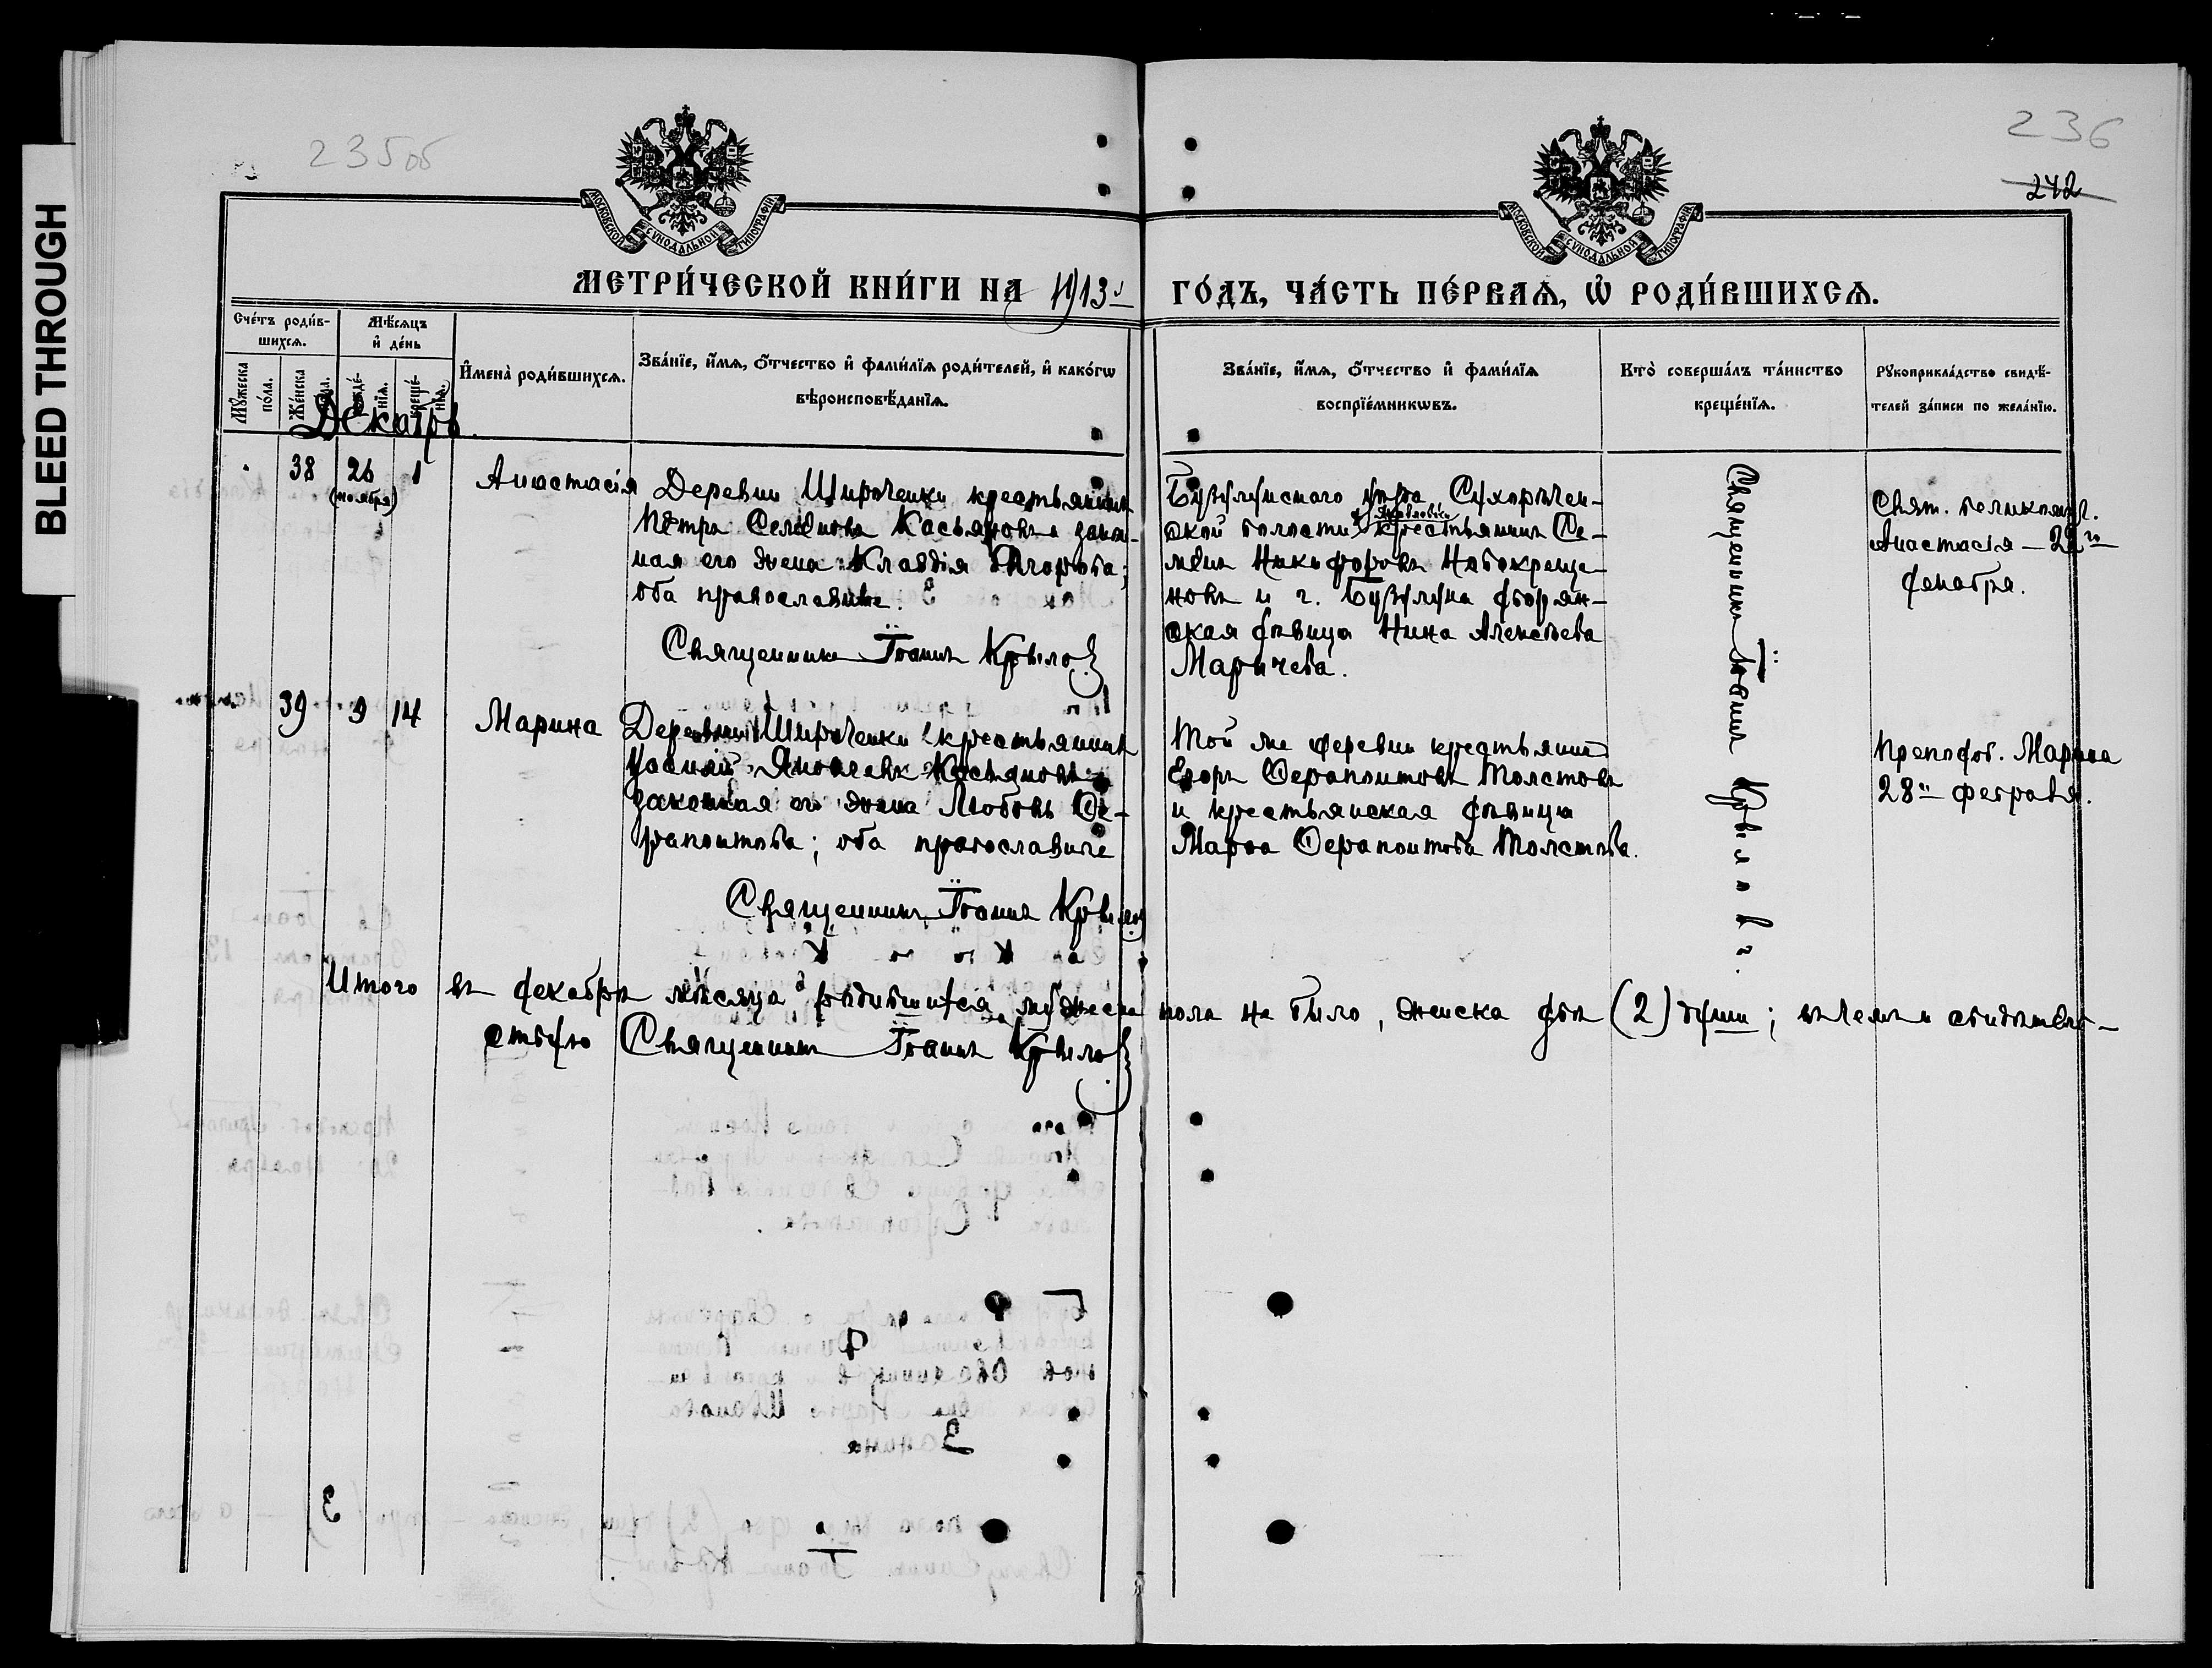 BLEED THROUGH
235об
236
242
МОСКОВСКОЙ СѴНОДАЛЬНОЙ ТИПОГРАФІИ
МОСКОВСКОЙ СѴНОДАЛЬНОЙ ТИПОГРАФІИ
МЕТРИ́ЧЕСКОЙ КНИ́ГИ НА 1913й ГО́ДЪ, ЧА́СТЬ ПЕ́РВАѦ, Ѽ РОДИ́ВШИХСѦ.
Сче́тъ роди́в-
шихсѧ.
Мѣ́сѧцъ
и҆ де́нь
Мꙋ́жеска
по́ла.
Же́нска
И҆мена̀ роди́вшихсѧ.
Зва́нїе, и҆́мѧ, ѻ҆́тчество и҆ фами́лїѧ роди́телей, и҆ како́гѡ
вѣроисповѣ́данїѧ.
Зва́нїе, и҆́мѧ, ѻ҆́тчество и҆ фами́лїѧ
воспрїе́мникѡвъ.
Кто̀ соверша́лъ та́инство
креще́нїѧ.
Рꙋкоприкла́дство свидѣ́-
телей за́писи по жела́нїю.
Декабрь.
38 26 1
(ноября)
Анастасія
Деревни Широченки крестьянинъ
Петръ Семеновъ Касьяновъ и закон-
ная его жена Клавдія Егорова;
оба православные.
Священникъ Іоаннъ Крылов
Бузулукскаго уѣзда Сухоречен-
ской волости крестьянинъ Се-
менъ Никифоровъ Новокреще-
новъ и г. Бузулука дворян-
ская дѣвица Нина Алексѣева
Маричева.
Священникъ Іоаннъ Крыловъ.
Свят. великомуч.
Анастасія – 22го
декабря.
39 9 14
Марина
Деревни Широченки крестьянинъ
Яковлевъ Касьяновъ и
законная его жена Любовь Се-
рапонтова; оба православные
Священникъ Іоаннъ Крылов
Той же деревни крестьянинъ
Егоръ Серапонтовъ Толстовъ
и крестьянская дѣвица
Марѳа Серапонтова Толстова.
Преподоб. Марина
28го февраля.
Итого въ декабрѣ мѣсяцѣ родившихся мужеска пола не было, женска двѣ (2) души; въ чемъ и свидѣтель-
ствую Священникъ Іоаннъ Крылов